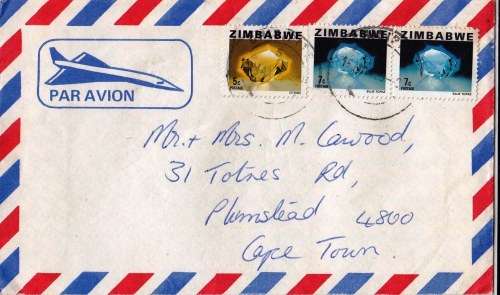 ZIMBABWE ZIMBABWE ZIMBABWE
5c 7c 7c
PAR AVION
Mr. + Mrs. M. Cawood,
31 Totnes Rd,
Plumstead 4800
Cape Town.